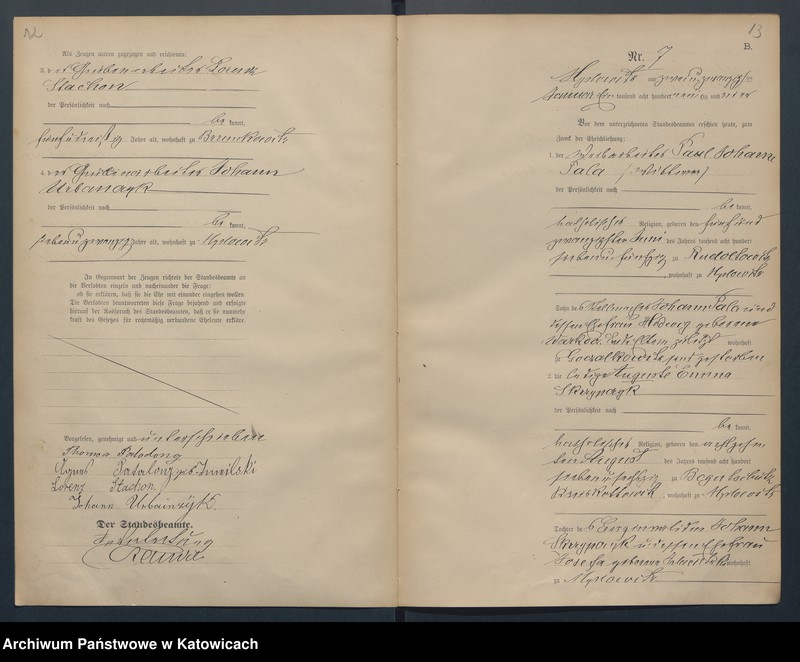 12
Als Zeugen waren zugezogen und erschienen:
3. der Grubenarbeiter Lorenz
Stachon
der Persönlichkeit nach
be kannt,
fünfunddreißig Jahre alt, wohnhaft zu Brzenkowitz
4. der Grubenarbeiter Johann
Urbanczyk
der Persönlichkeit nach
be kannt,
siebenundzwanzig Jahre alt, wohnhaft zu Myslowitz
In Gegenwart der Zeugen richtete der Standesbeamte an
die Verlobten einzeln und nacheinander die Frage:
ob sie erklären, daß sie die Ehe mit einander eingehen wollen.
Die Verlobten beantworteten diese Frage bejahend und erfolgte
hierauf der Ausspruch des Standesbeamten, daß er sie nunmehr
kraft des Gesetzes für rechtmäßig verbundene Eheleute erkläre.
Vorgelesen, genehmigt und unterschrieben
Thomas
Agnes geb.
Lorenz Stachon
Johann Urbainzÿk.
Der Standesbeamte.
In Vertretung
13
B.
Nr. 7
Myslowitz am zweiundzwanzigsten
Januar tausend acht hundert neunzig und vier
Vor dem unterzeichneten Standesbeamten erschien heute, zum
Zweck der Eheschließung:
1. der Paul Johann
Pala (Wittwer)
der Persönlichkeit nach
be kannt,
katholischer Religion, geboren den fünfund
zwanzigsten Juni des Jahres tausend acht hundert
siebenundfünfzig zu Rudoltowitz
, wohnhaft zu Myslowitz
Sohn des Johann Pala und
dessen Ehefrau Hedwig geborene
zuletzt wohnhaft
zu Goczalkowitz und gestorben
2. die ledige Auguste Emma
Skrzypczyk
der Persönlichkeit nach
be kannt,
katholischer Religion, geboren den achtzehn
ten August des Jahres tausend acht hundert
siebenundsechzig zu Bogutschütz
Kreis Kattowitz, wohnhaft zu Myslowitz
Tochter des Berginvaliden Johann
Skrzypczyk und dessen Ehefrau
Josefa geborene wohnhaft
zu Myslowitz
Archiwum Państwowe w Katowicach